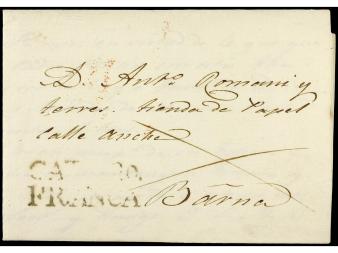 D. Anto. Romani y
terres. tienda de Papel
Calle Ancha
FRANCA
Barna